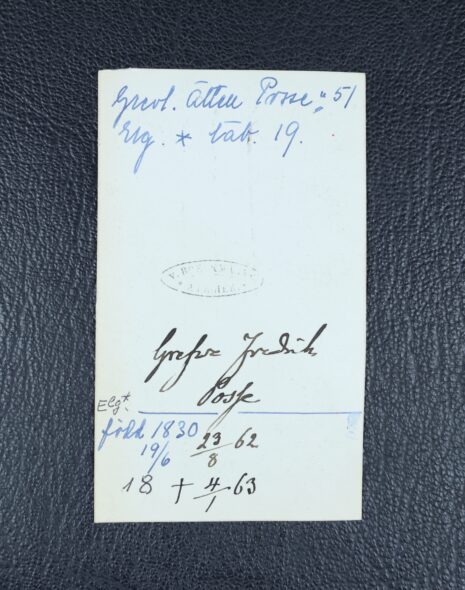 Grevl. Ätten Posse № 51
Elg. * tab. 19.
Grefve Fredrik
Posse
Elg*.
född 1830
19/6 23/8 62
18 † 4/1 63